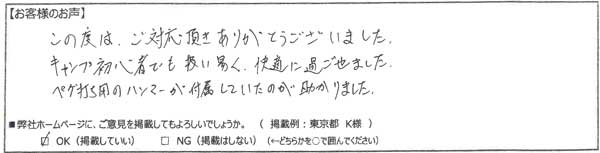 【お客様のお声】
この度は、ご対応頂きありがとうございました。
キャンプ初心者でも扱い易く、快適に過ごせました。
ペグ打ち用のハンマーが付属していたのが助かりました。
■弊社ホームページに、ご意見を掲載してもよろしいでしょうか。（掲載例：東京都 K様）
☑ OK（掲載していい） □ NG（掲載はしない）（←どちらかを○で囲んでください）